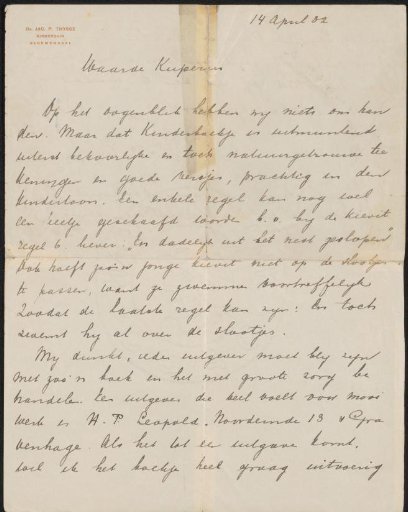 Dr. JAC. P. THYSSE
BLOEMENDAAL
14 April 32
Waarde Kuperus
Op het oogenblik hebben wy niets om han
den. Maar dat Kinderboekje is uitmuntend
uiterst bekoorlyke en toch natuurgetrouwe tee
keningen en goede versjes, prachtig in den
kindertoon. Een enkele regel kan nog wel
een ietsje geschaafd worden b.v. by de kievit
regel 6. liever: "En dadelyk uit het nest geslopen"
Ook hoeft zoo'n jonge kievit niet op de slootjes
te passen, want ze zwemmen voortreffelyk
zoodat de laatste regel kan zyn: En toch
zwemt hy al over de slootjes.
My dunkt, ieder uitgever moet bly zyn
met zoo'n boek en het met groote zorg be
handelen. Een uitgever die veel voelt voor mooi
werk is H. P. Leopold, Noordeinde 13 's Gra
venhage. Als het tot een uitgave komt,
wil ik het boekje heel graag uitvoerig